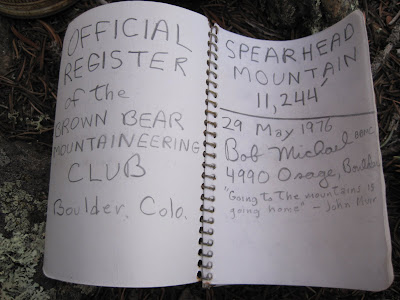 OFFICIAL
REGISTER
of the
BROWN BEAR
MOUNTAINEERING
CLUB
Boulder, Colo.
SPEARHEAD
MOUNTAIN
11,244'
29 May 1976
Bob Michael BBMC
4990 Osage, Boulder
"Going to the mountains is
going home" - John Muir